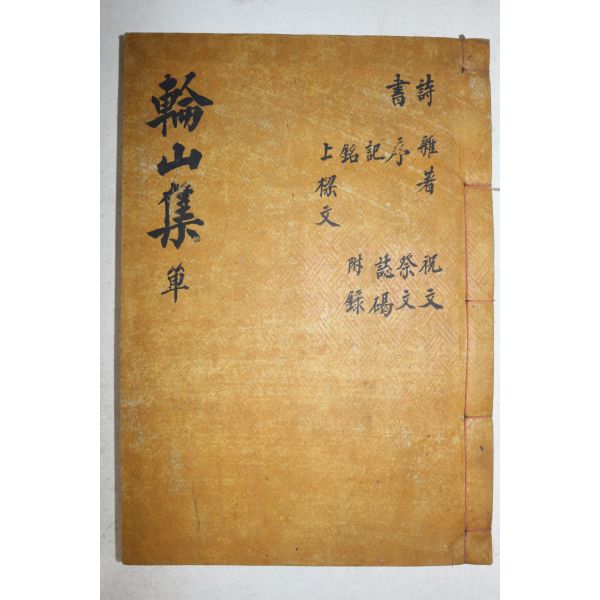 輪山集 單
詩
書
雜著
序
記
銘
上樑文
祝文
祭文
誌碣
附錄